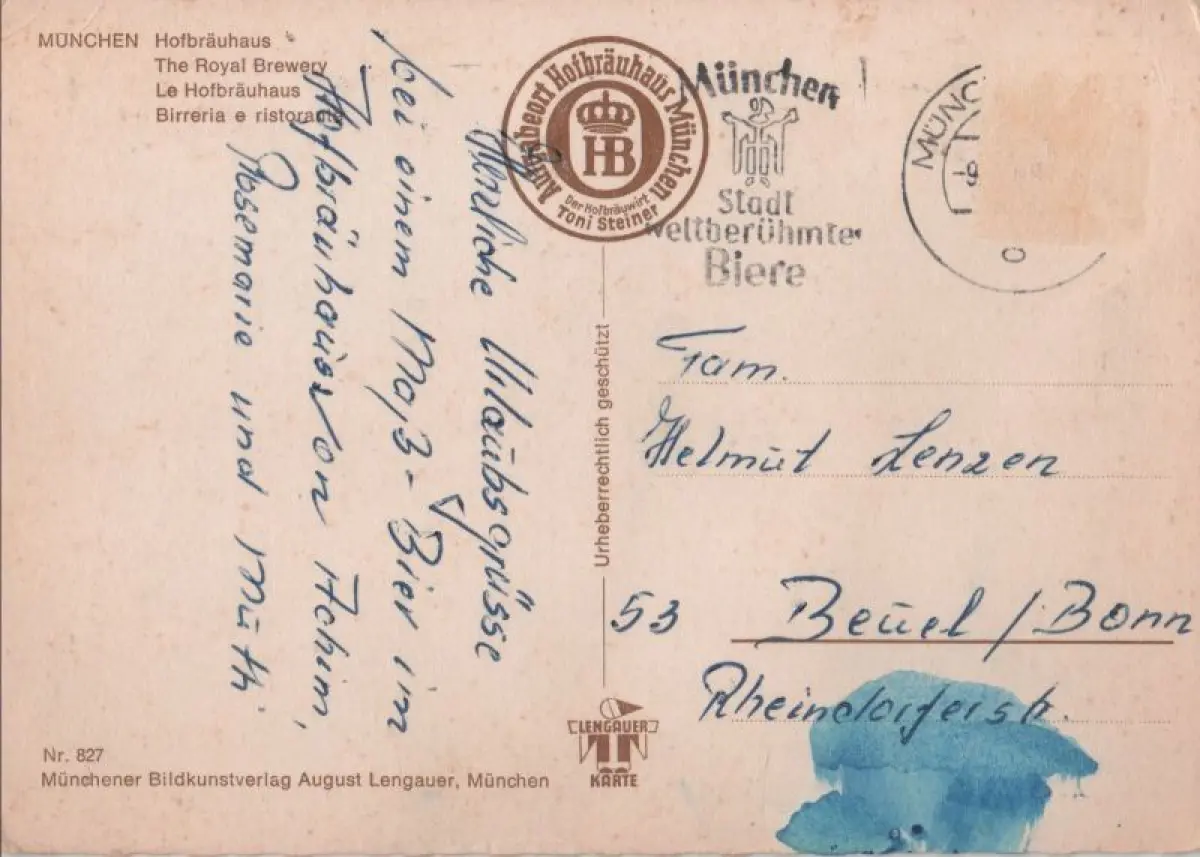 MÜNCHEN Hofbräuhaus
The Royal Brewery
Le Hofbräuhaus
Birreria e ristorante
Herzliche Urlaubsgrüsse
bei einem Maß-Bier im
Hofbräuhaus von Achim,
Rosemarie und Mutti
Ausgabeort Hofbräuhaus München
HB
Der Hofbräuwirt
Toni Steiner
München
Stadt
weltberühmter
Biere
MÜNC
Urheberrechtlich geschützt
Fam.
Helmut Lenzen
53 Beuel/Bonn
Rheindorferstr.
LENGAUER
KARTE
Nr. 827
Münchener Bildkunstverlag August Lengauer, München